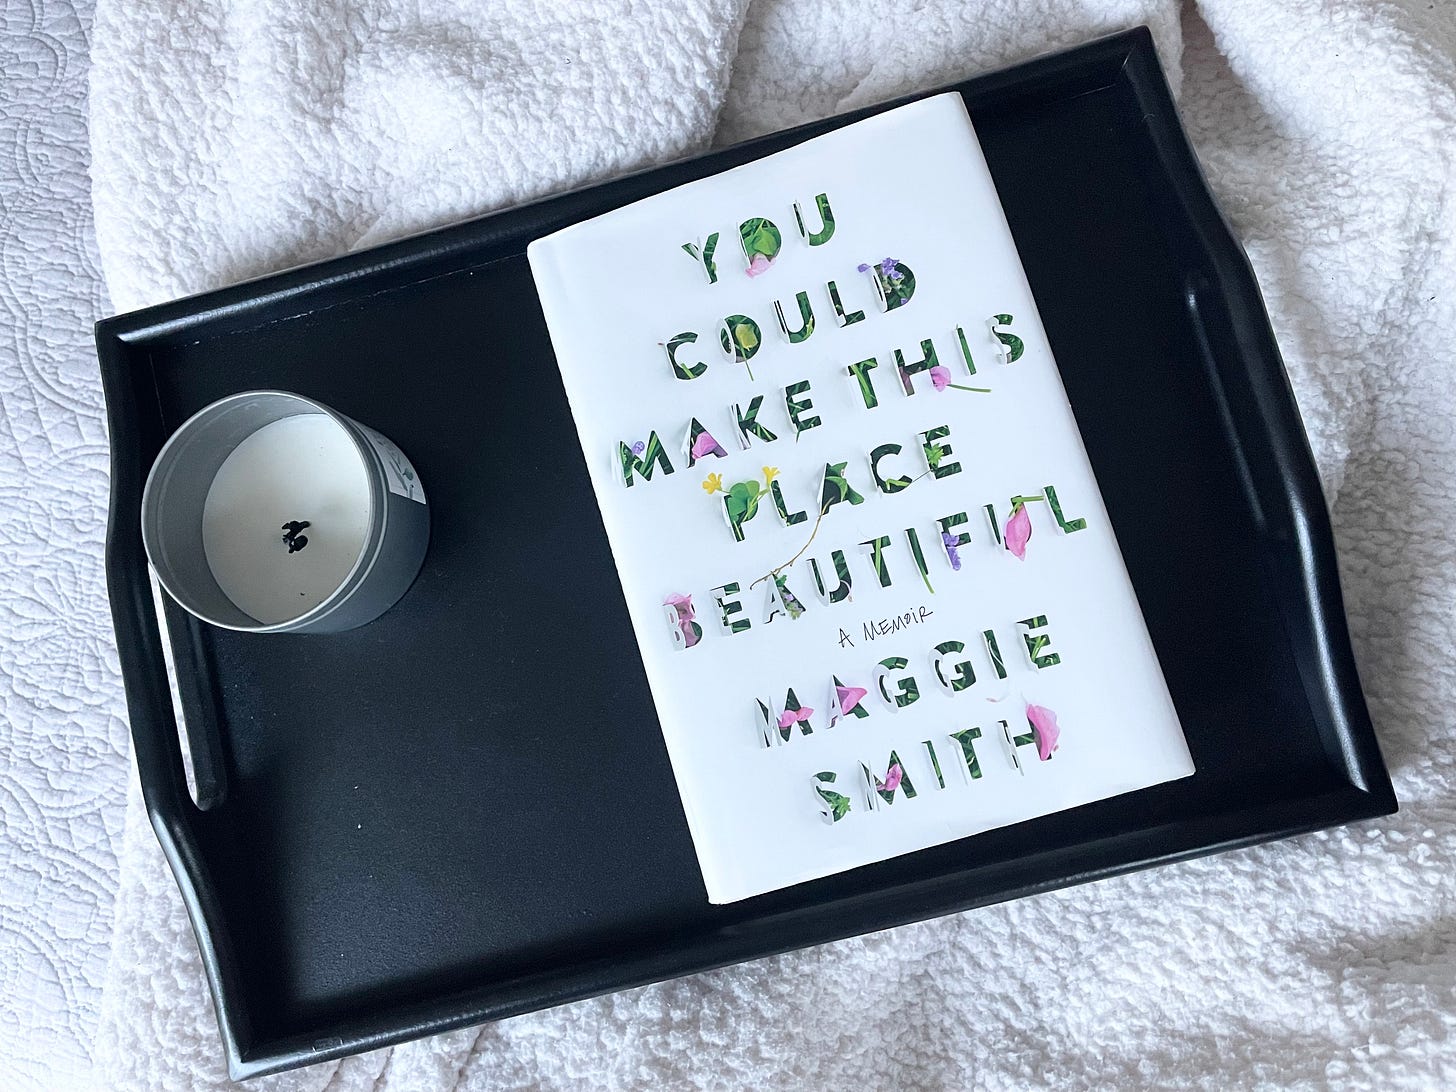 YOU
COULD
MAKE THIS
PLACE
BEAUTIFUL
A MEMOIR
MAGGIE
SMITH